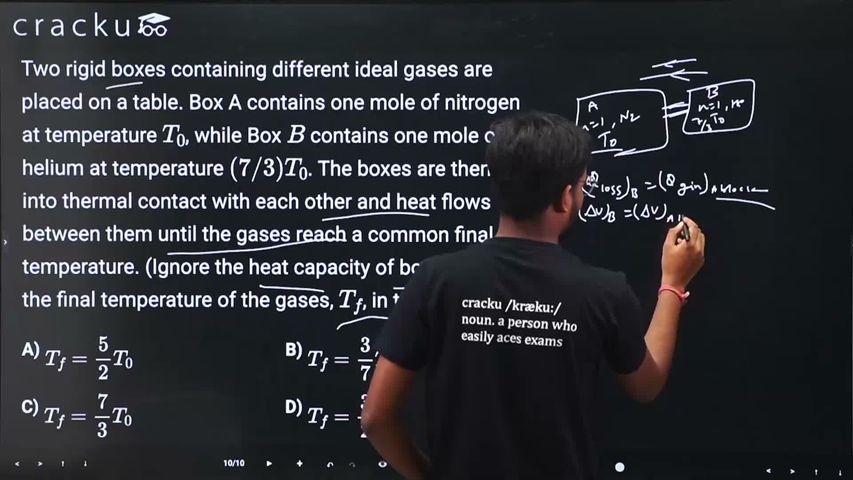 cracku
Two rigid boxes containing different ideal gases are
placed on a table. Box A contains one mole of nitrogen
at temperature T₀, while Box B contains one mole
helium at temperature (7/3)T₀. The boxes are then
into thermal contact with each other and heat flows
between them until the gases reach a common final
temperature. (Ignore the heat capacity of
the final temperature of the gases, T_f, in
A) T_f = 5/2 T₀
B) T_f = 3/7
C) T_f = 7/3 T₀
D) T_f =
A
n=1, N₂
T₀
B
n=1, He
7/3 T₀
loss)_B = (Q gin)_A block
(ΔU)_B = (ΔU)_A
cracku /kræku:/
noun. a person who
easily aces exams
10/10